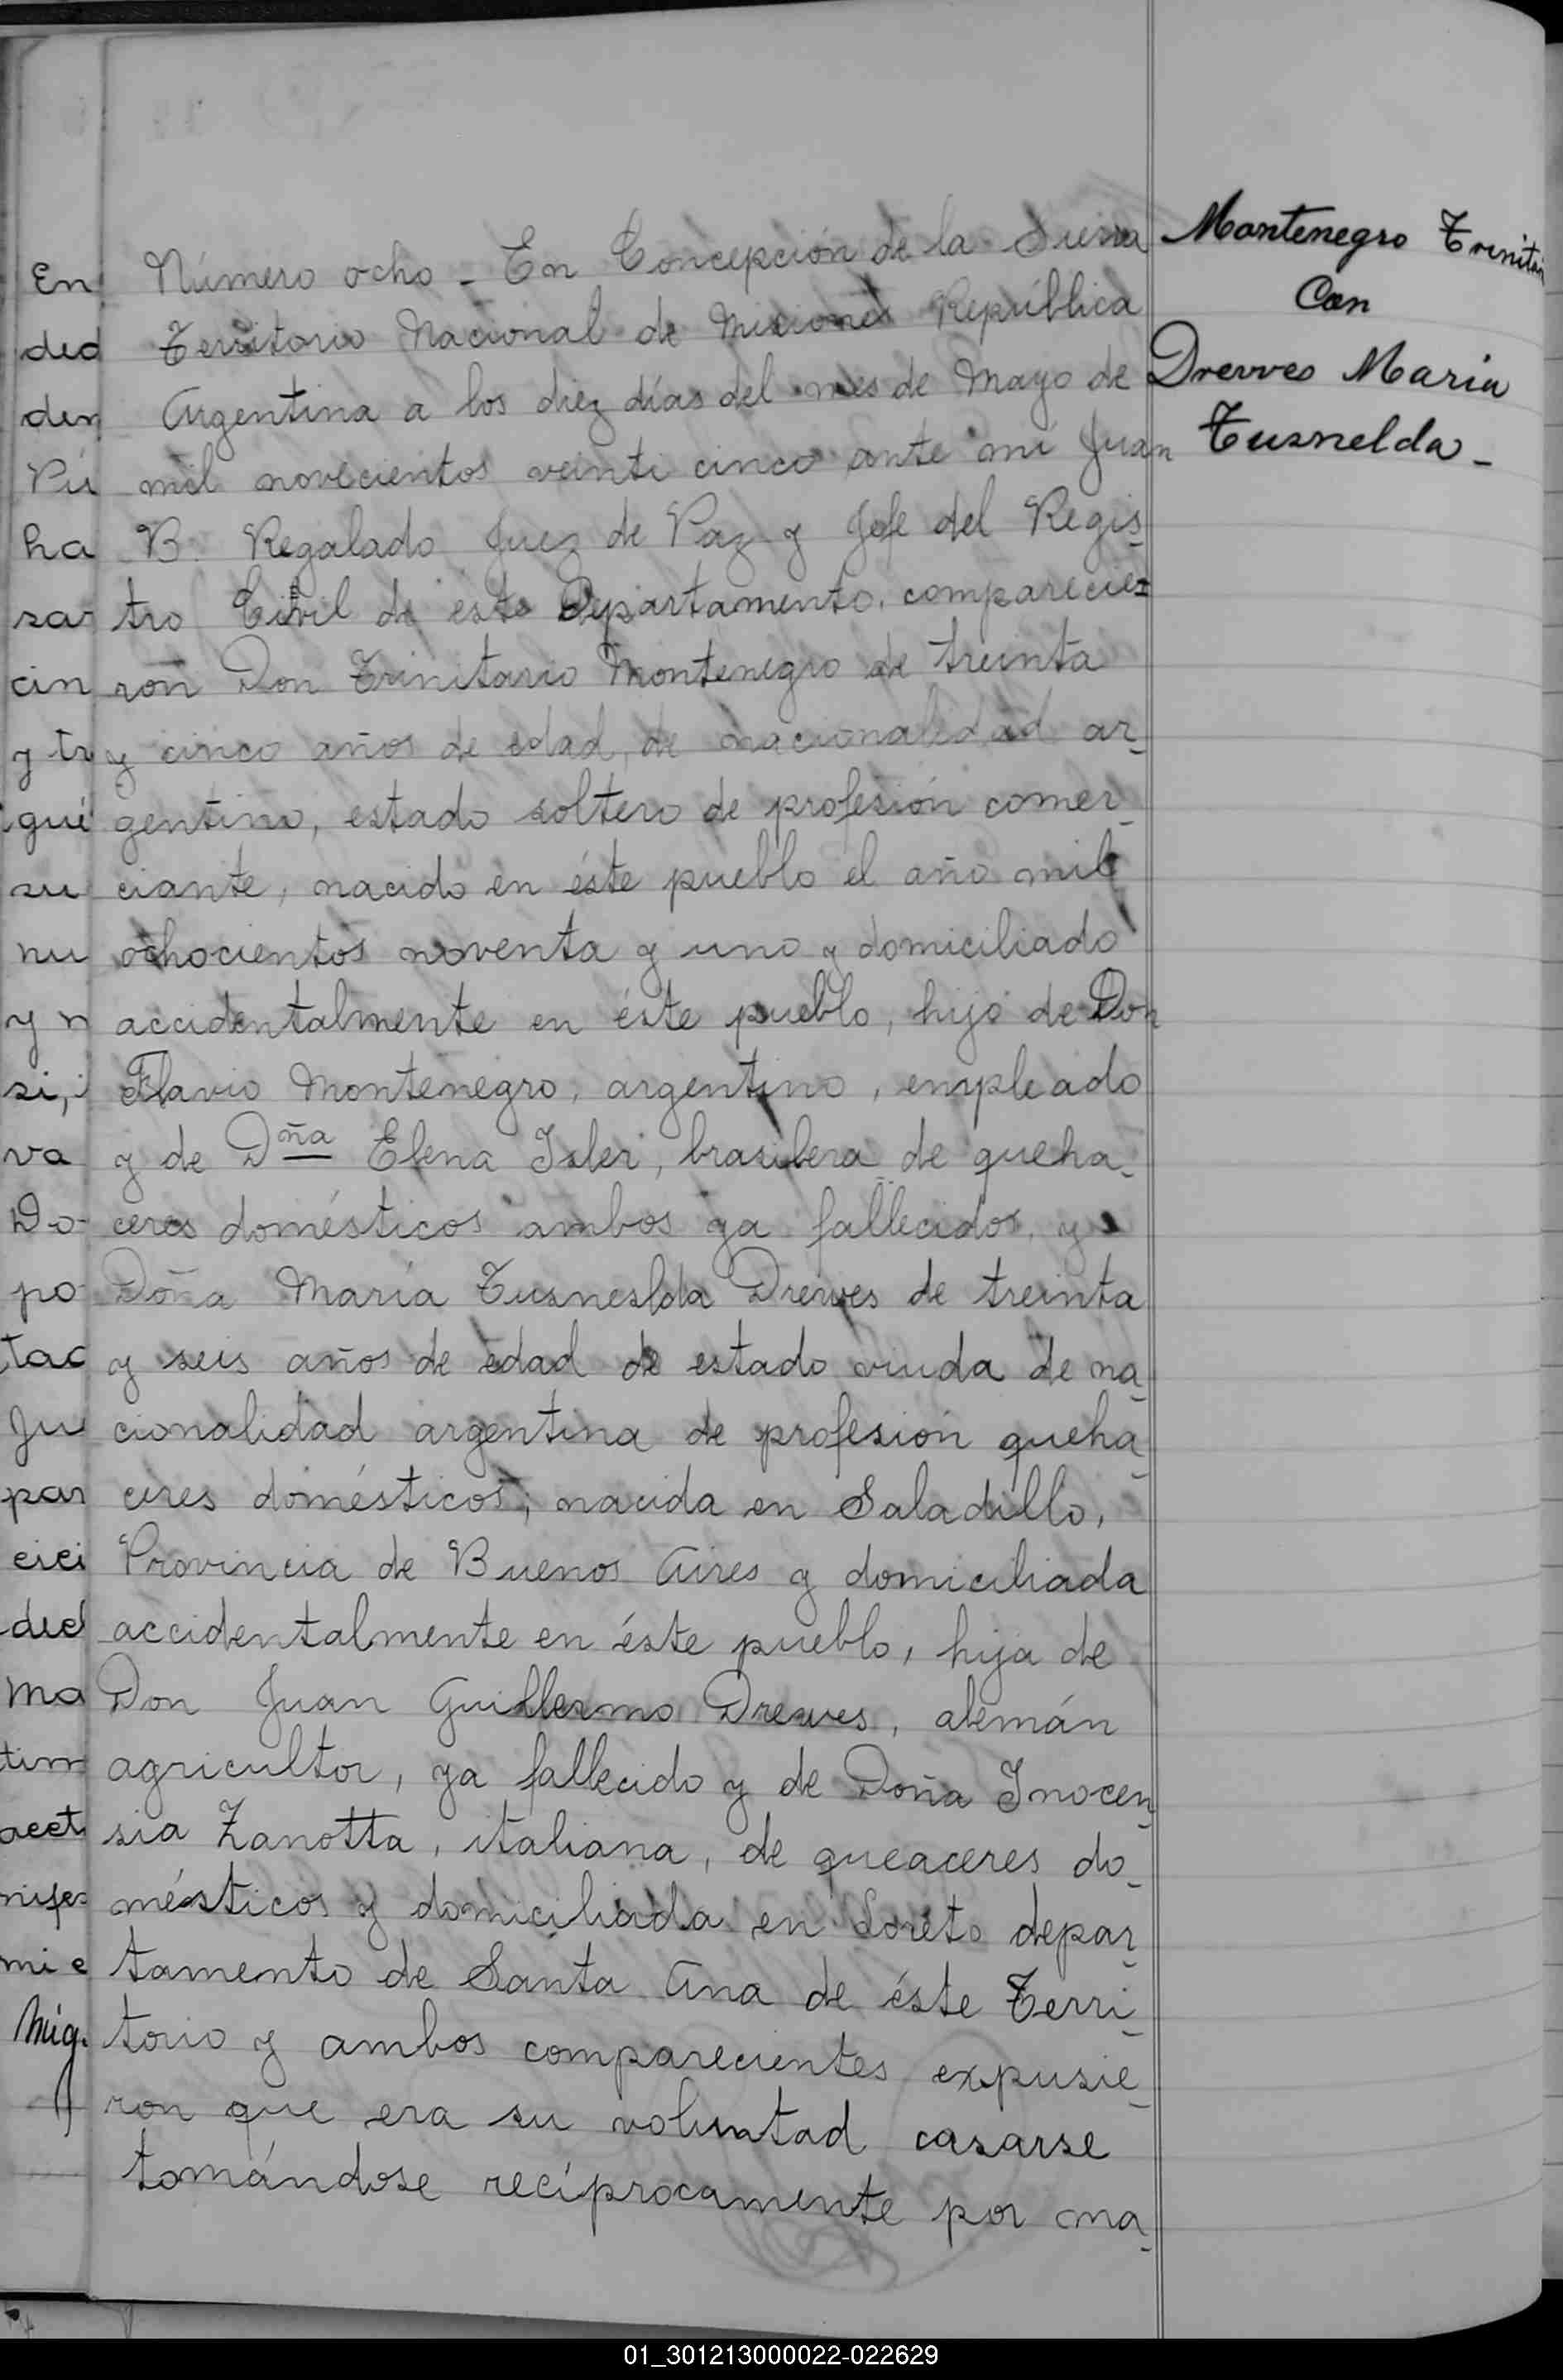 Montenegro Trinitari
Con
Drewes Maria
Tusnelda -
Número ocho - En Concepción de la Sierra
Territorio Nacional de Misiones República
Argentina a los diez días del mes de Mayo de
mil novecientos veinti cinco ante mí Juan
B. Regalado Juez de Paz y Jefe del Regis-
tro Civil de este Departamento, comparecie-
ron Don Trinitario Montenegro de treinta
y cinco años de edad, de nacionalidad ar-
gentino, estado soltero de profesión comer-
ciante, nacido en éste pueblo el año mil
ochocientos noventa y uno y domiciliado
accidentalmente en éste pueblo, hijo de Don
Flavio Montenegro, argentino, empleado
y de Dña Elena Isler, brasilera de queha-
ceres domésticos ambos ya fallecidos, y
Doña María Tusneslda Drewes de treinta
y seis años de edad de estado viuda de na-
cionalidad argentina de profesión queha-
ceres domésticos, nacida en Saladillo,
Provincia de Buenos Aires y domiciliada
accidentalmente en éste pueblo, hija de
Don Juan Guillermo Drewes, alemán
agricultor, ya fallecido y de Doña Inocen-
sia Zanotta, italiana, de queaceres do-
mésticos y domiciliada en Loreto depar-
tamento de Santa Ana de éste Terri-
torio y ambos comparecientes expusie-
ron que era su voluntad casarse
tomándose recíprocamente por ma-
En
ded
den
Pú
ha
sa
cin
y tr
gui
su
nu
y n
si,
va
Do
po
tac
Ju
par
cici
ded
ma
tim
acet
nifes
mi e
Mig.
01_301213000022-022629